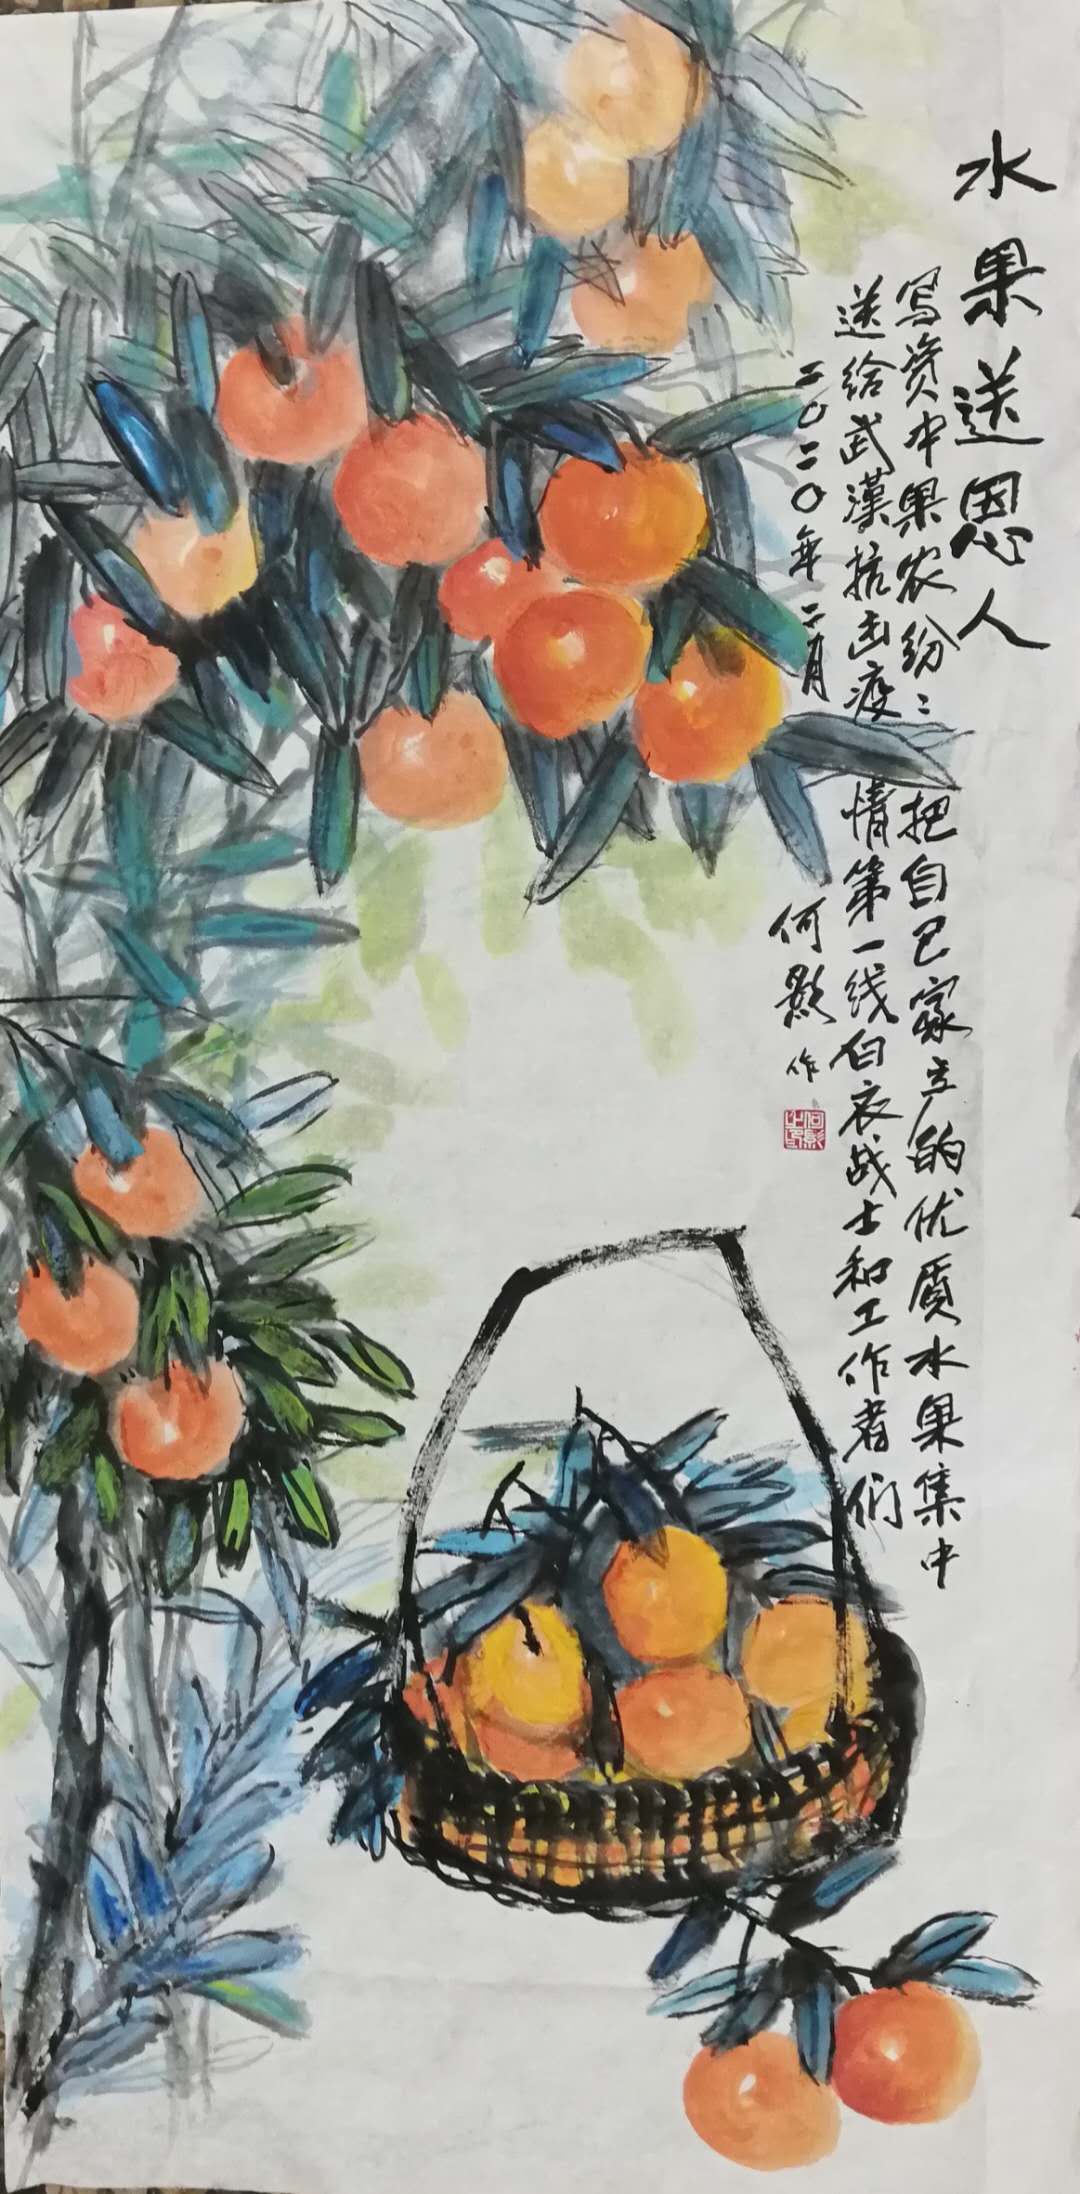 水果送恩人
写资中果农纷纷把自己家产的优质水果集中
送给武漢抗击疫情第一线白衣战士和工作者们
二〇二〇年二月
何影作
何影之印